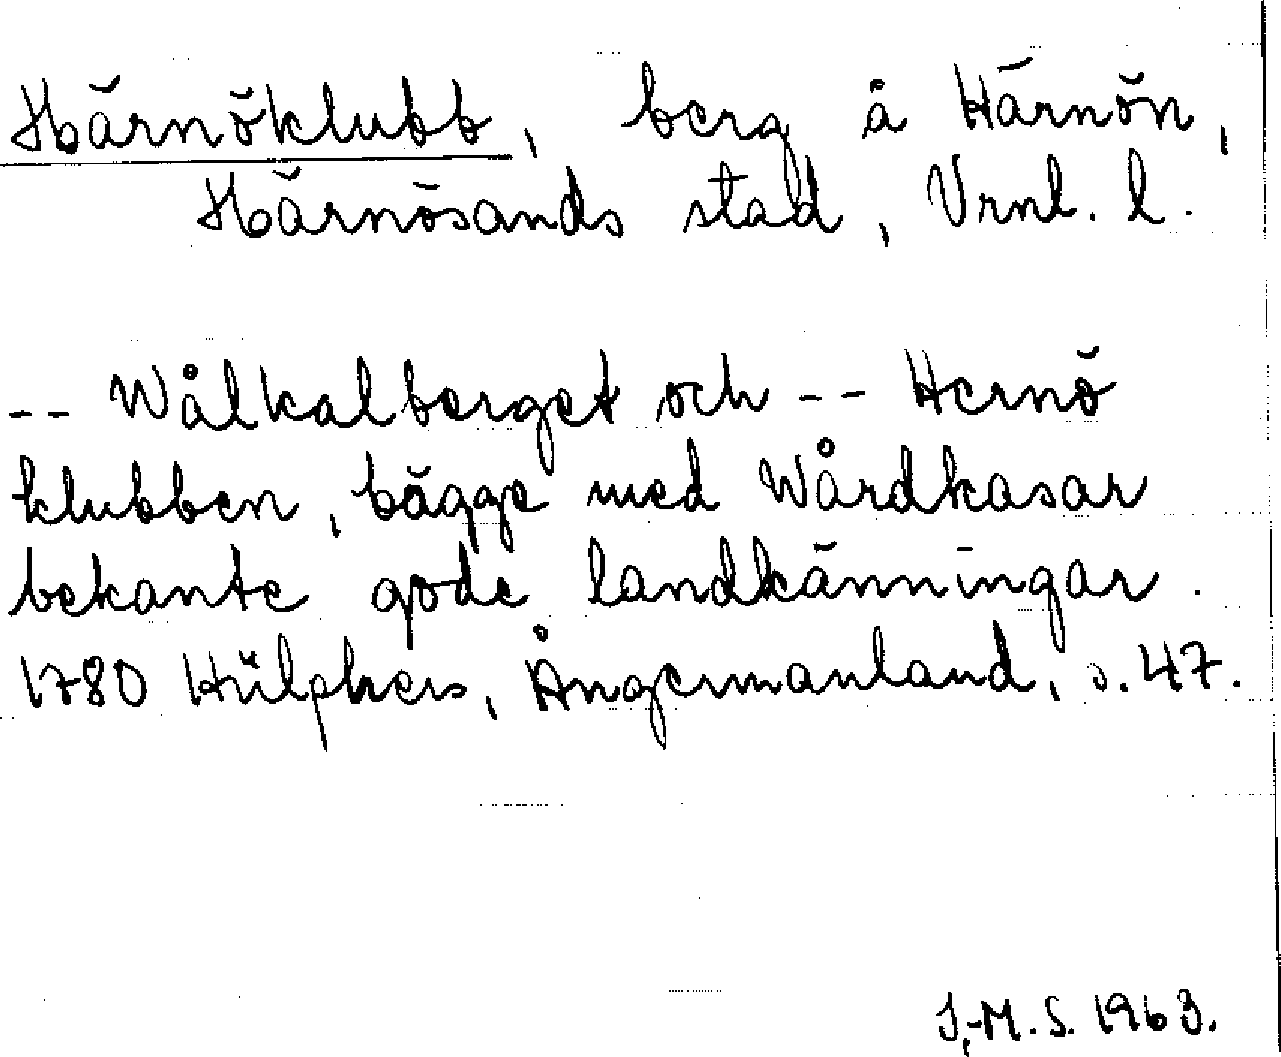 Härnöklubb, berg å Härnön,
Härnösands stad, Vrnl. l.
-- Wålkalberget och -- Hernö
klubben, bägge med Wårdkasar
bekante gode landkänningar.
1780 Hülphers, Ångermanland, s. 47.
J.-M. S. 1963.